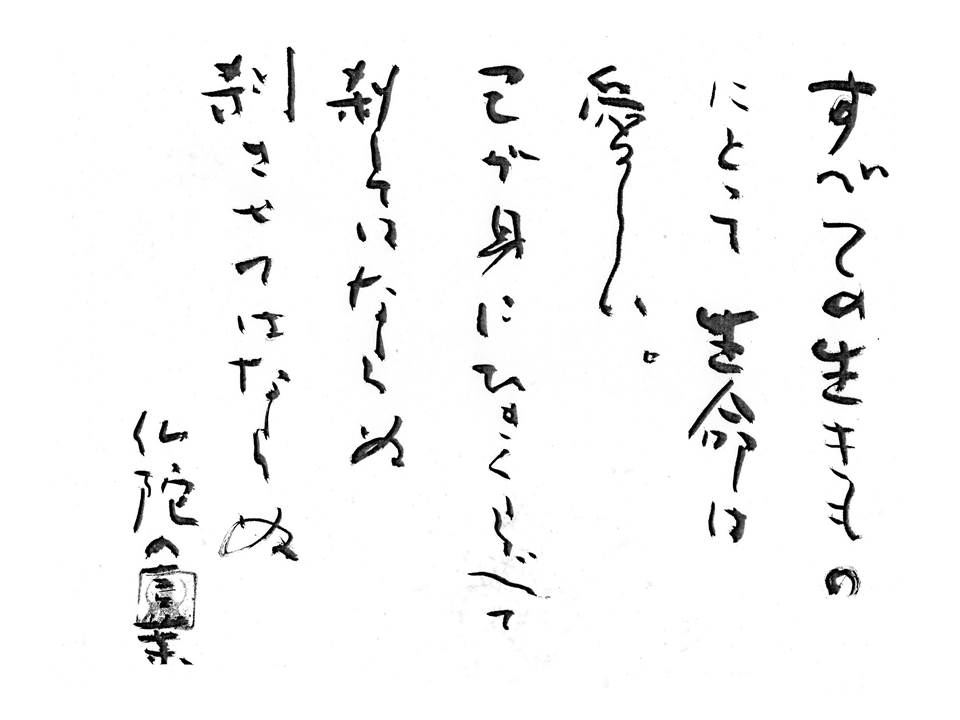 すべての生きもの
にとって 生命は
愛らしい。
己が身にひきくらべて
殺してはならぬ
殺させてはならぬ
仏陀の言葉